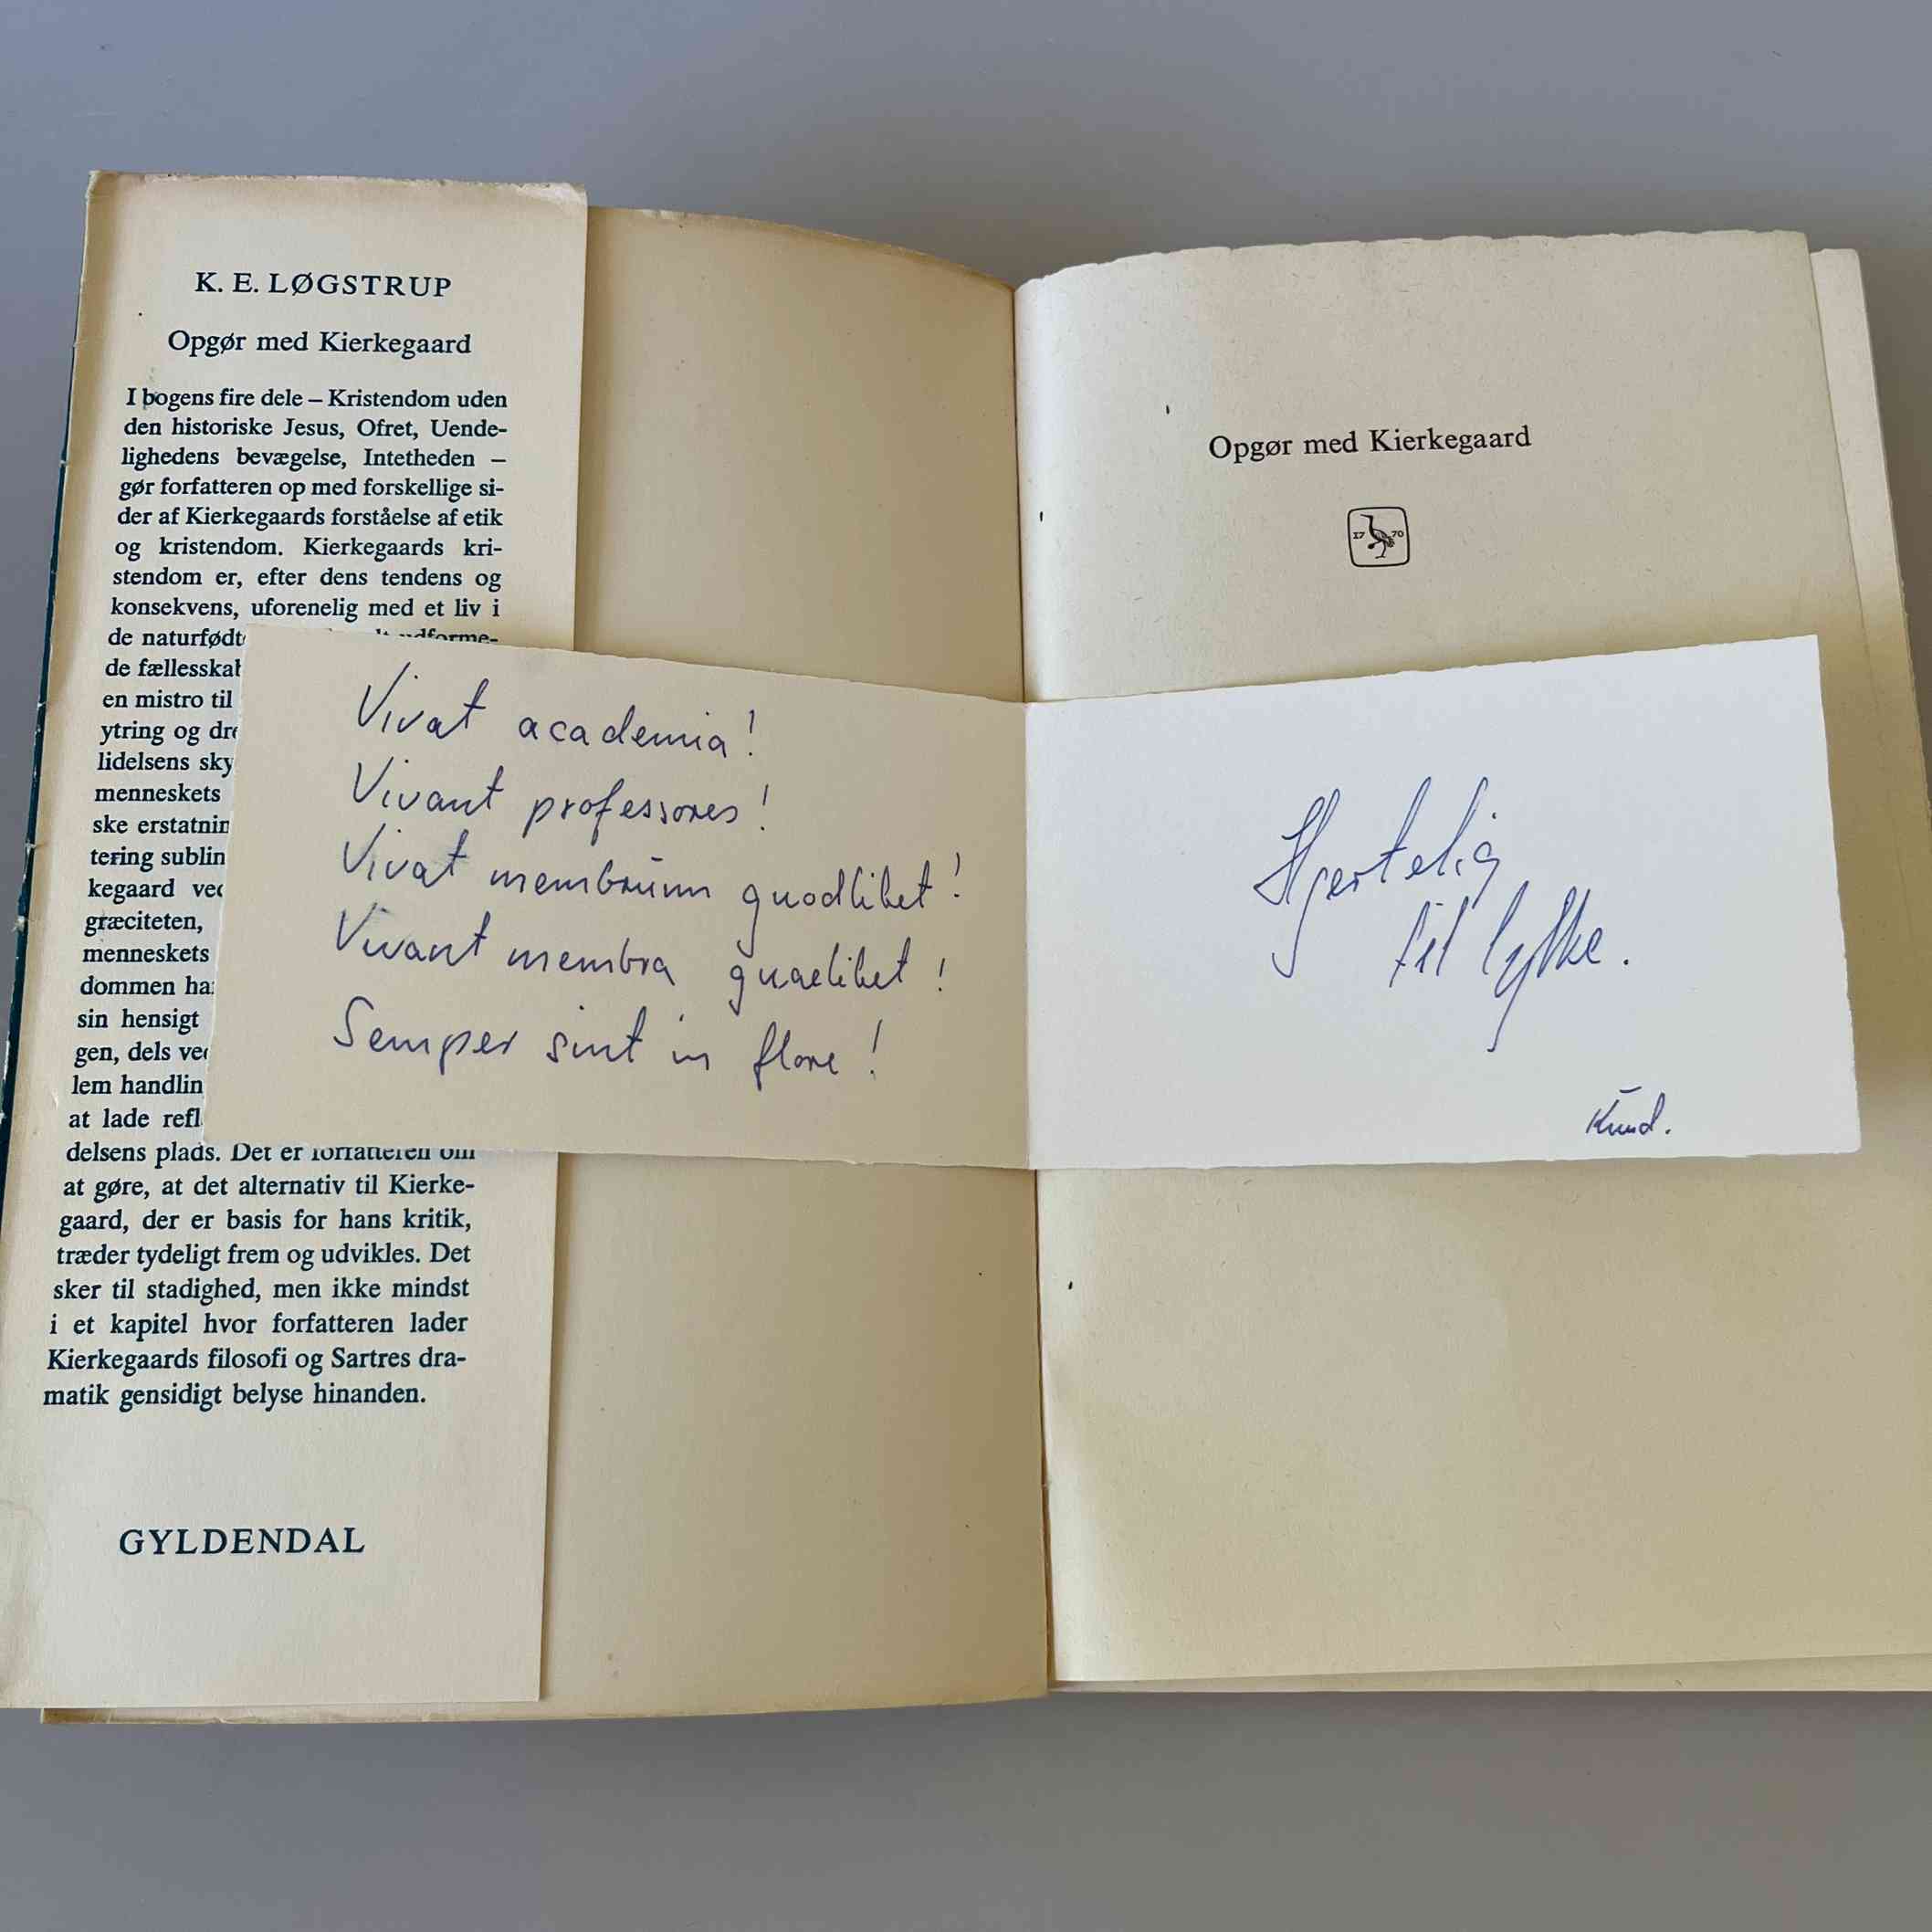 K. E. LØGSTRUP
Opgør med Kierkegaard
I bogens fire dele – Kristendom uden
den historiske Jesus, Ofret, Uende-
lighedens bevægelse, Intetheden –
gør forfatteren op med forskellige si-
der af Kierkegaards forståelse af etik
og kristendom. Kierkegaards kri-
stendom er, efter dens tendens og
konsekvens, uforenelig med et liv i
de naturfødt udforme-
de fællesskab
en mistro til
ytring og
lidelsens
menneskets
ske
tering
kegaard
græciteten,
menneskets
dommen
sin hensigt
gen, dels
lem
at lade
delsens plads. Det er forfatteren om
at gøre, at det alternativ til Kierke-
gaard, der er basis for hans kritik,
træder tydeligt frem og udvikles. Det
sker til stadighed, men ikke mindst
i et kapitel hvor forfatteren lader
Kierkegaards filosofi og Sartres dra-
matik gensidigt belyse hinanden.
GYLDENDAL
Vivat academia!
Vivant professores!
Vivat membrum quodlibet!
Vivant membra quaelibet!
Semper sint in flore!
Opgør med Kierkegaard
17 70
Hjertelig
til lykke.
Knud.